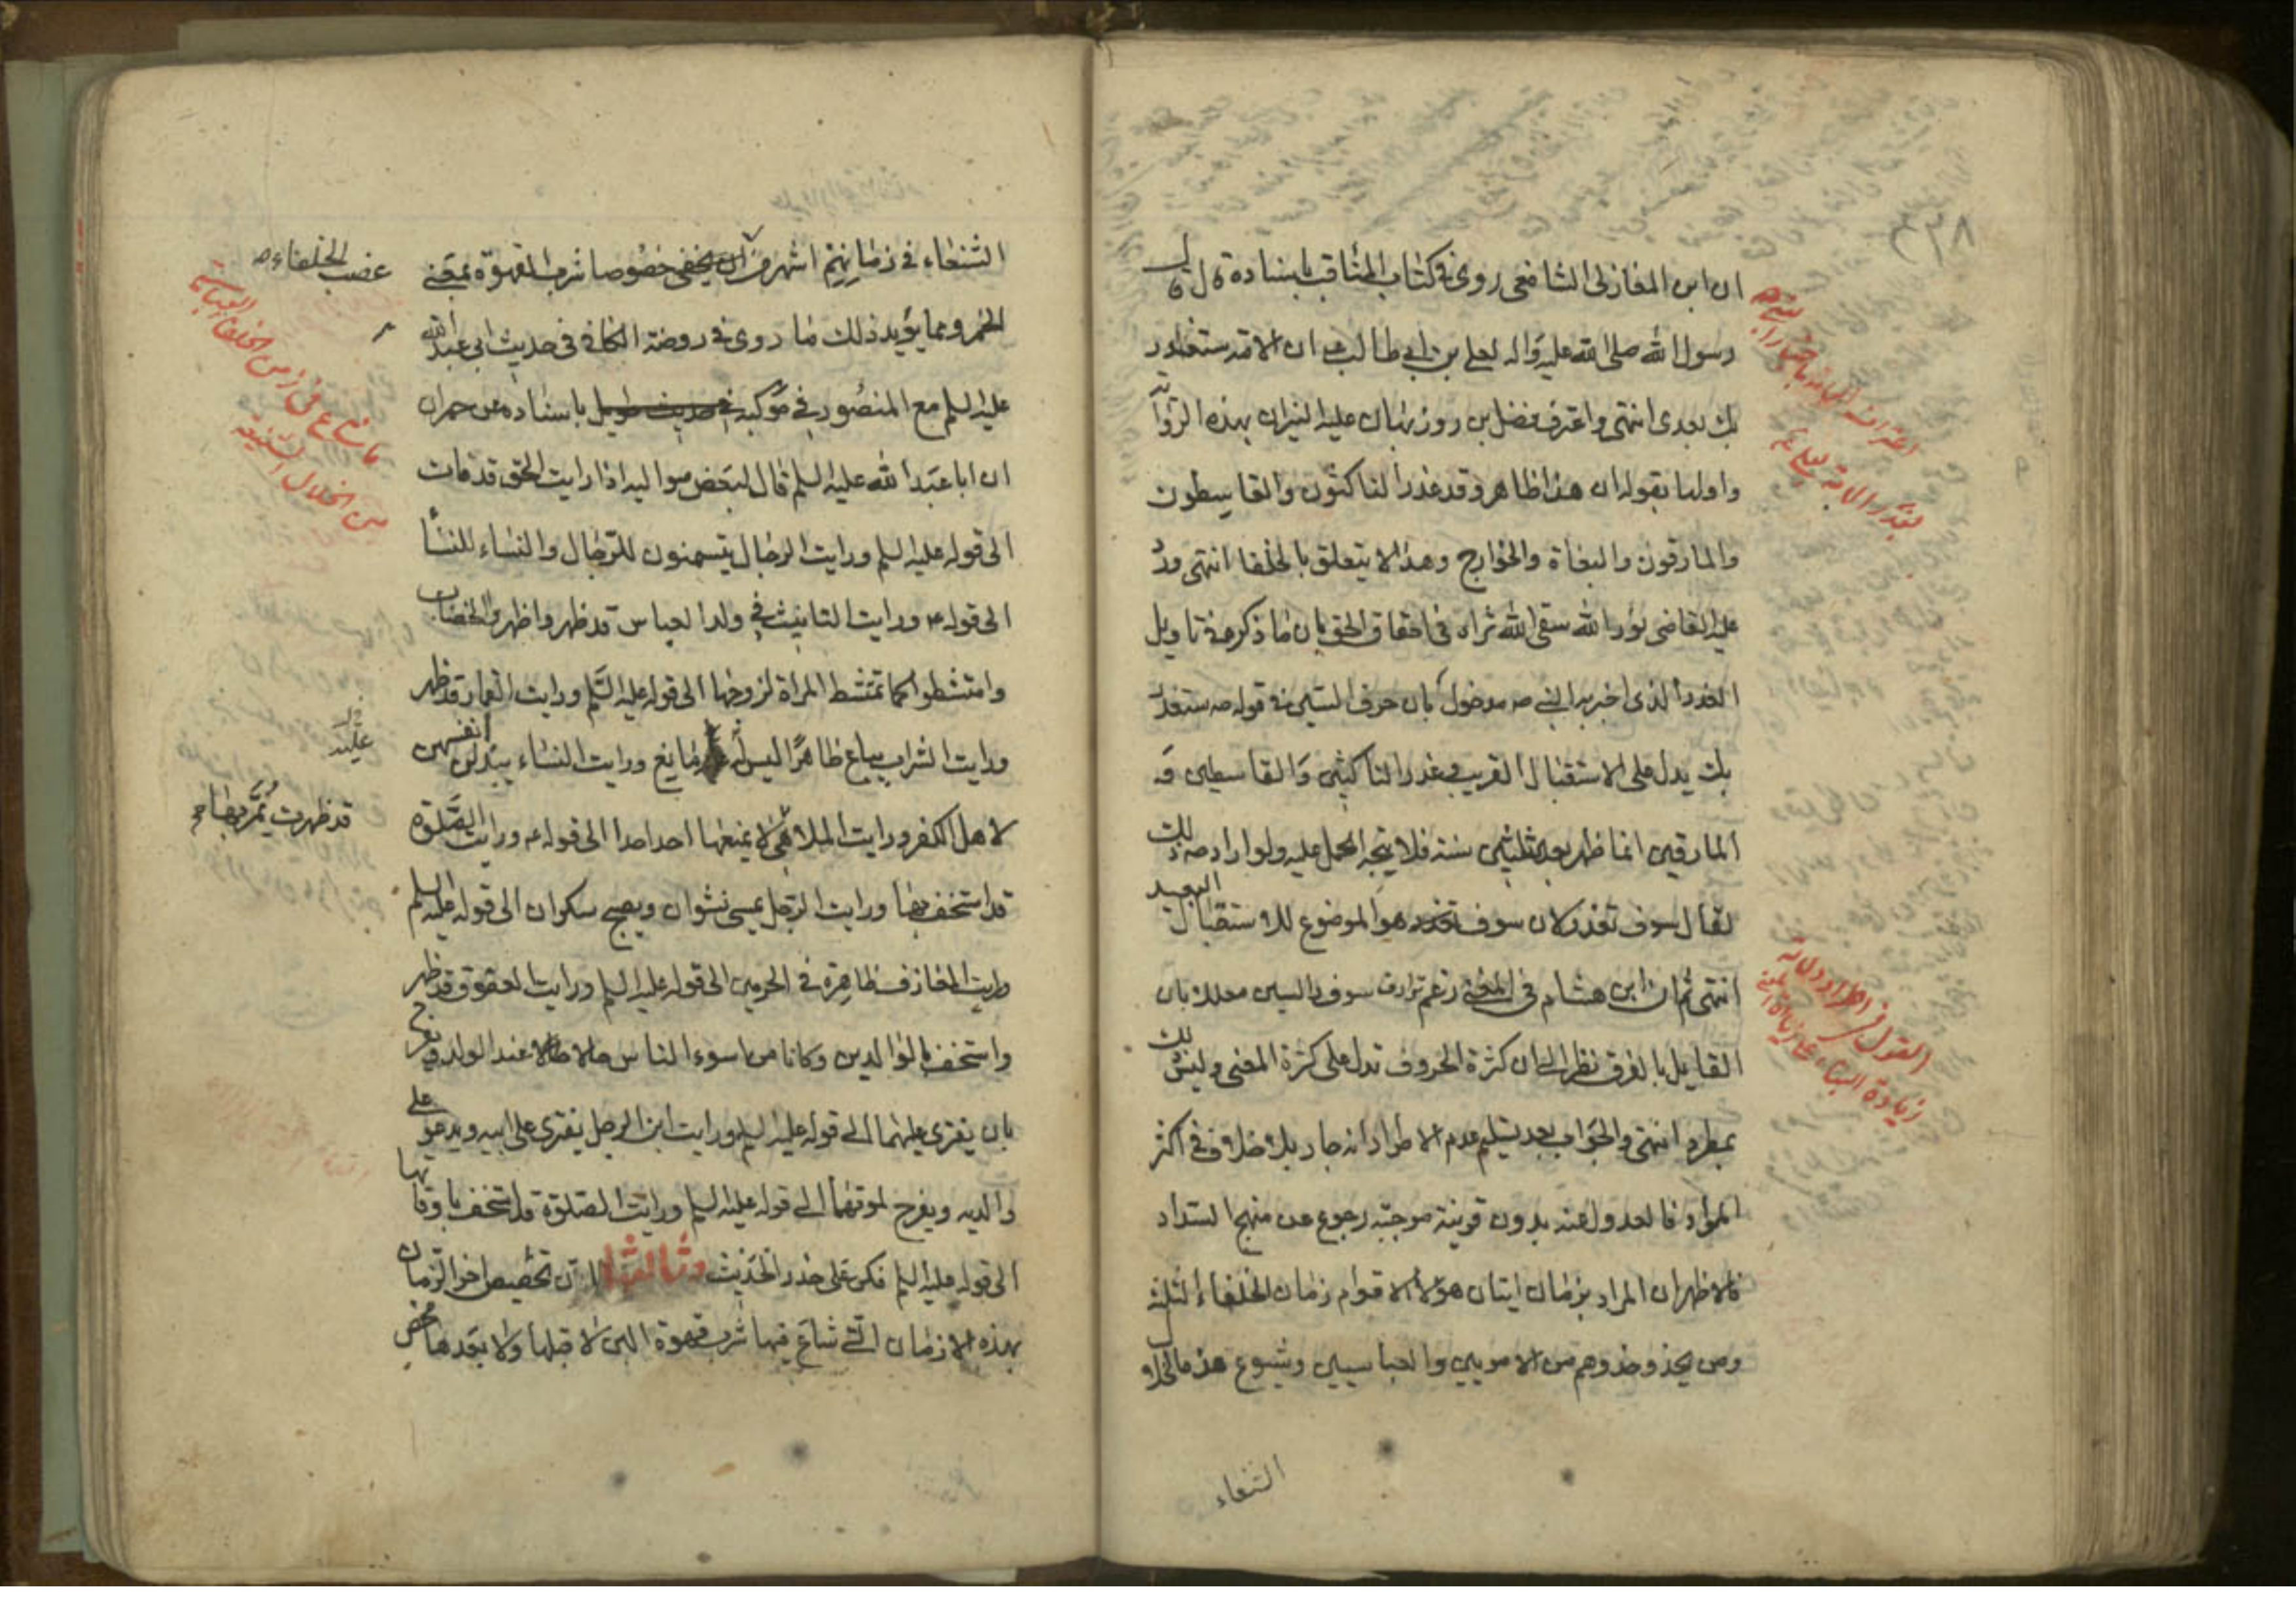 ٣٣٨
ان ابن المغازلى الشافعى روى فى كتاب المناقب باسناده قال قال
رسول الله صلى الله عليه واله لعلي بن ابي طالب ع ان الامة ستغدر
بك بعدى انتهى واعترف فضل بن روزبهان عليه النيران بهذه الرواية
واولها بقوله ان هذا ظاهر وقد غدر الناكثون والقاسطون
والمارقون والبغاة والخوارج وهذا لا يتعلق بالخلفا انتهى ورد
عليه القاضى نور الله سقى الله ثراه فى احقاق الحق بان ما ذكره فى تاويل
الغدر الذى اخبر به النبي ص مدخول بان حرف السين فى قوله ص ستغدر
بك يدل على الاستقبال القريب وغدر الناكثين والقاسطين و
المارقين انما ظهر بعد ثلثين سنة فلا يتجه الحمل عليه ولو اراد ص ذلك
لقال سوف تغدر لان سوف هو الموضوع للاستقبال البعيد
انتهى ثم ان ابن هشام فى المغنى زعم ترادف سوف والسين معللا بان
القايل بالفرق نظر الى ان كثرة الحروف تدل على كثرة المعنى وليس ذلك
بمطرد انتهى والجواب بعد تسليم عدم الاطراد انه جار بلا خلاف فى اكثر
الموارد فالعدول عنه بدون قرينة موجبة رجوع عن منهج السداد
فالاظهر ان المراد بزمان اتيان هؤلاء الاقوام زمان الخلفاء الثلثة
ومن يحذو حذوهم من الامويين والعباسيين وشيوع هذه الخلال
الشنعاء
القول فى اطراد دلالة
زيادة البناء على زيادة المعنى
الشنعاء فى زمانهم اشهر من ان يخفى خصوصا شرب القهوة بمعنى
الخمر ومما يؤيد ذلك ما روى فى روضة الكافى فى حديث ابى عبد الله
عليه السلم مع المنصور فى موكبه فى حديث طويل باسناده عن حمران
ان ابا عبد الله عليه السلم قال لبعض مواليه اذا رايت الحق قد مات
الى قوله عليه السلم ورايت الرجال يتسمنون للرجال والنساء للنسآ
الى قوله ع ورايت التانيث فى ولد العباس قد ظهر واظهروا الخضاب
وامتشطوا كما تمتشط المراة لزوجها الى قوله عليه السلم ورايت القمار قد ظهر
ورايت الشراب يباع ظاهرا ليس له مانع ورايت النساء يبذلن انفسهن
لاهل الكفر ورايت الملاهى لا يمنعها احد احدا الى قوله ع ورايت الصلوة
قد استخف بها ورايت الرجل يمسى نشوان ويصبح سكران الى قوله عليه السلم
ورايت المعازف ظاهرة فى الحرمين الى قوله عليه السلم ورايت العقوق قد ظهر
واستخف بالوالدين وكانا من اسوء الناس حالا عند الولد ويفرح
بان يفترى عليهما الى قوله عليه السلم ورايت ابن الرجل يفترى على ابيه ويدعو على
والديه ويفرح لموتهما الى قوله عليه السلم ورايت الصلوة قد استخف باوقاتها
الى قوله عليه السلم فكن على حذر الحديث وثالثها ان تخصيص اخر الزمان
بهذه الازمان التى شاع فيها شرب قهوة البن لا قبلها ولا بعدها محض
غصب الخلفاء ص
ما شاع فى زمن الخلفاء العباسية
من الخلال الشنيعة
عليه
قد ظهرت يمر بها